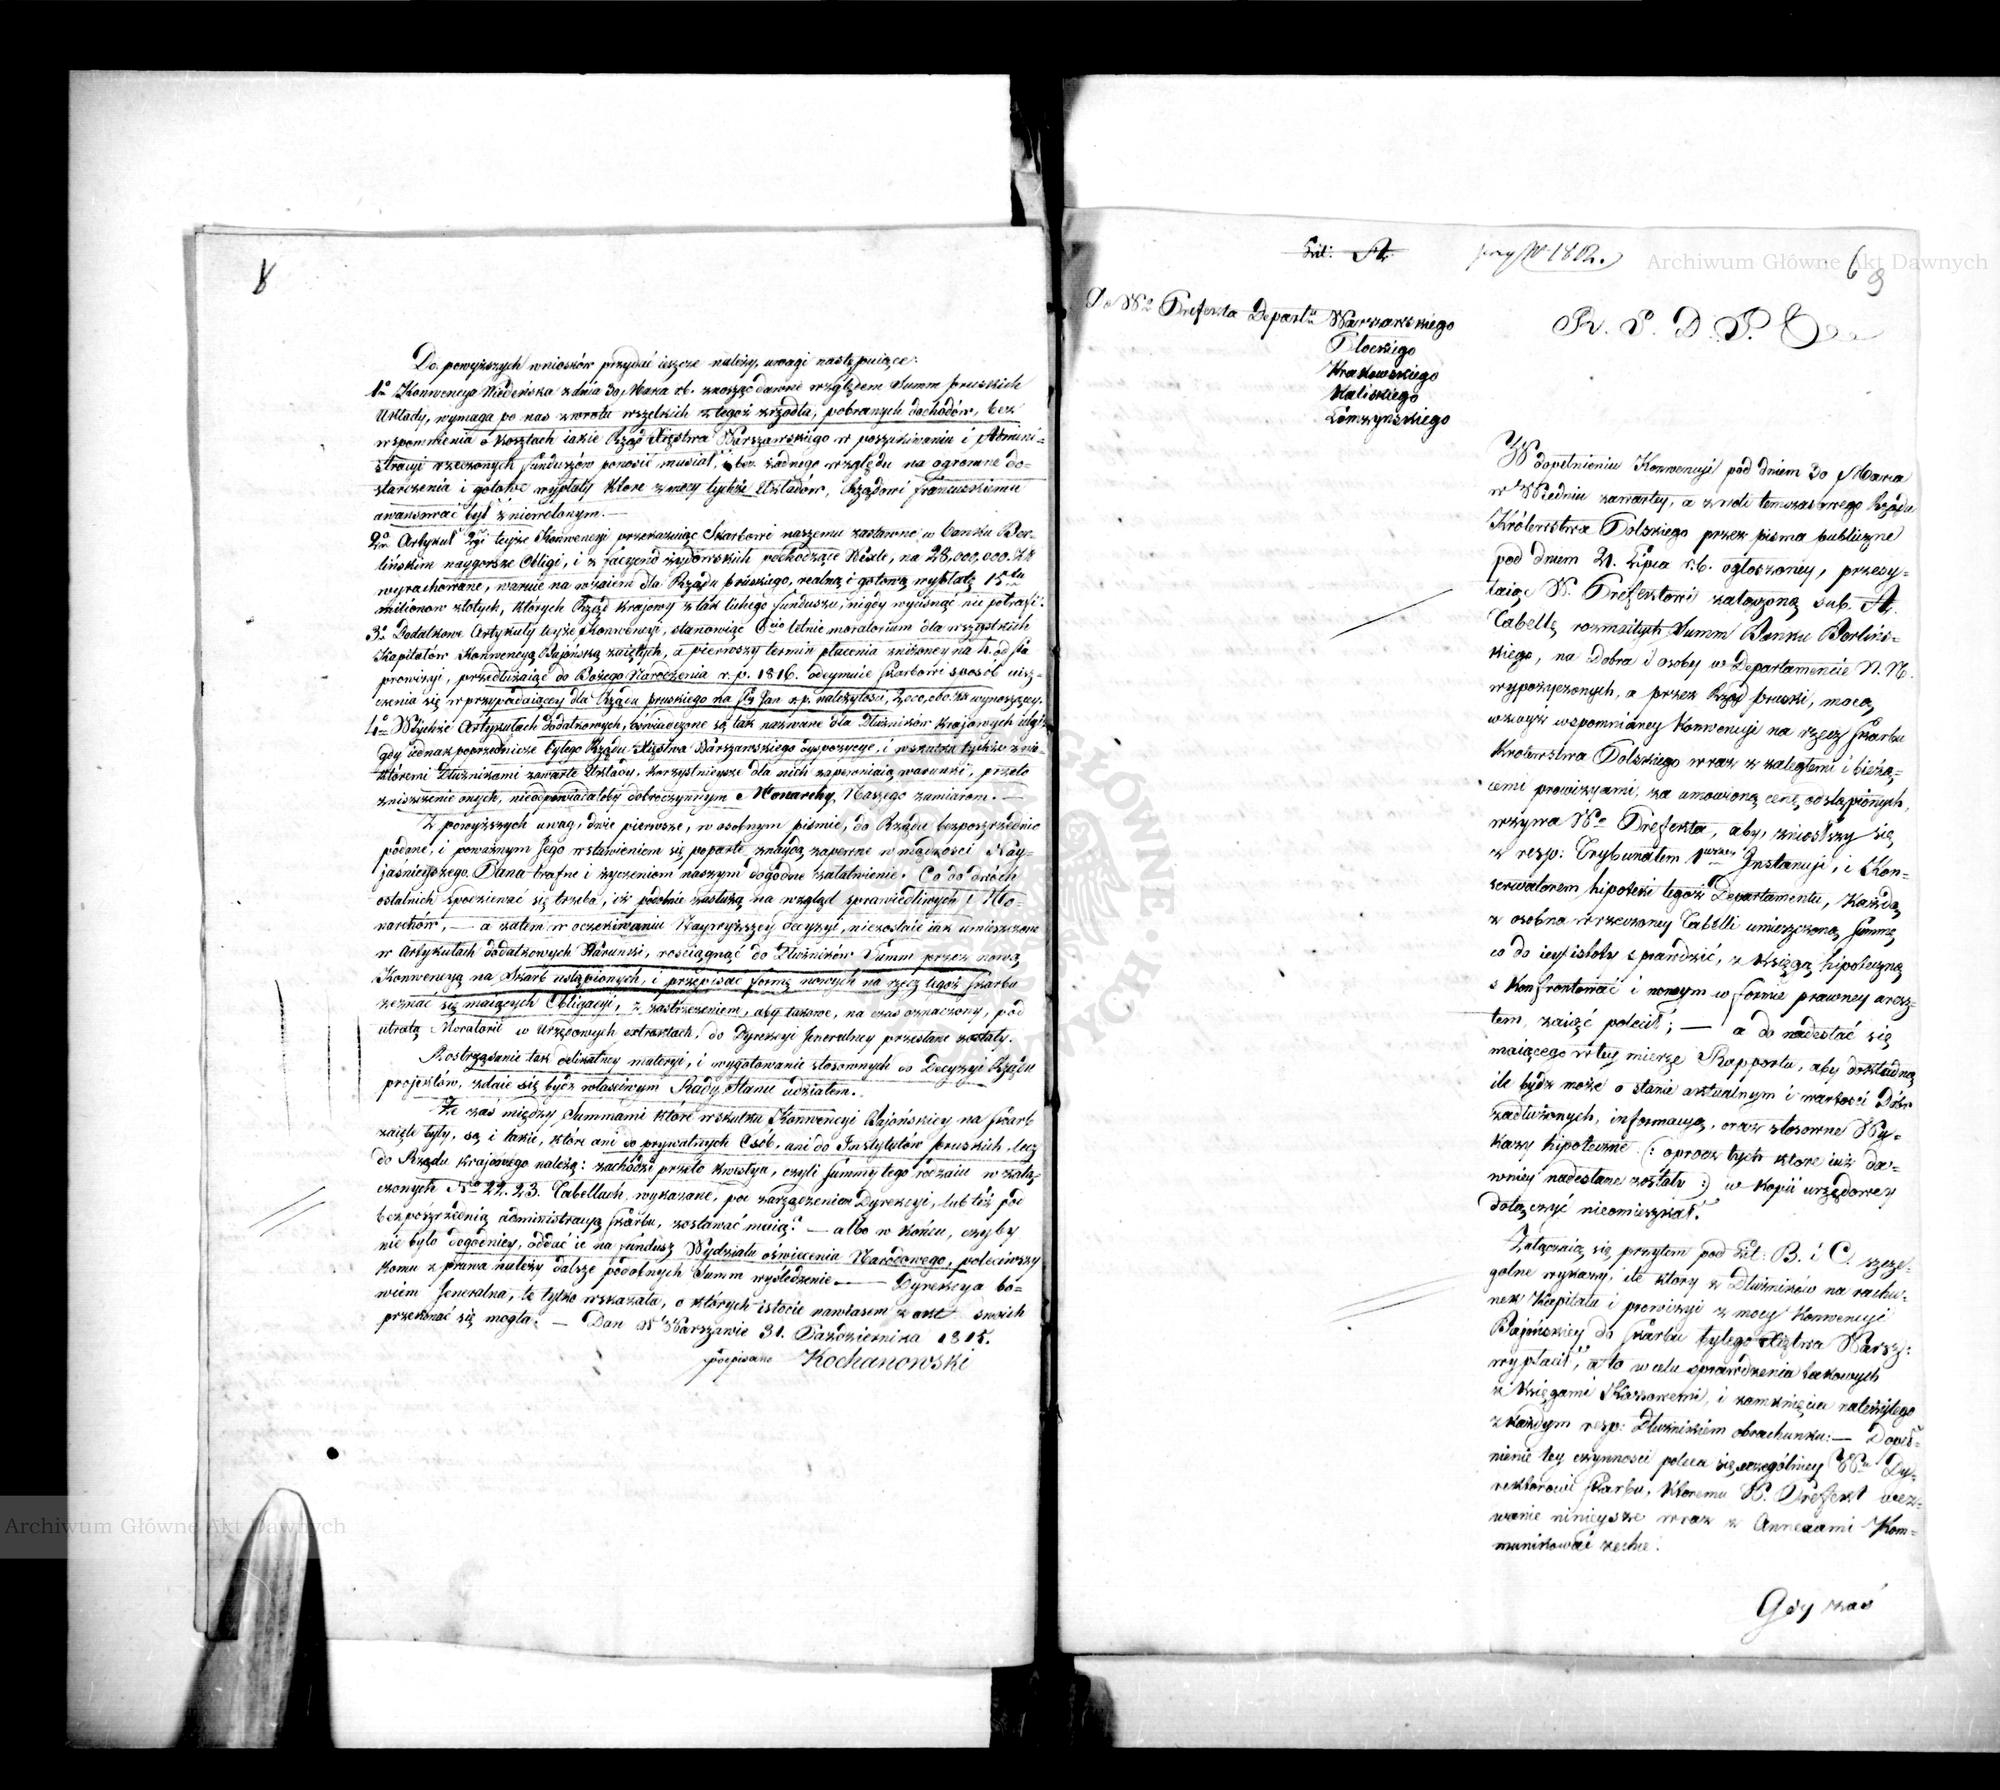 8
Do powyższych wniosków przydać ieszcze należy, uwagi następuiące:
1o Konwencya Wiedeńska z dnia 30 Marca r.b. znosząc dawne względem Summ pruskich
Układy, wymaga po nas zwrotu wszelkich z tegoż zrzódła, pobranych dochodów, bez
wspomnienia o kosztach iakie Rząd Xięstwa Warszawskiego w poszukiwaniu i Admini-
stracyi rzeczonych funduszów ponosić musiał, bez żadnego względu na ogromne do-
starczenia i gotowe wypłaty które z mocy tychże Układów, Rządowi francuzkiemu
awansować był zniewolonym. —
2o Artykuł 2gi teyże Konwencyi przekazuiąc Skarbowi naszemu zastawne w banku Ber-
lińskim naygorsze Obligi, i z facyend żydowskich pochodzące Wexle, na 28,000,000. Zł
wyrachowane, waruie na wzaiem dla Rządu pruskiego, realną i gotową wypłatę 15tu
milionow złotych, których Rząd krajowy z tak lichego funduszu, nigdy wycisnąć nie potrafi.
3o Dodatkowe Artykuły teyże Konwencyi, stanowiąc 6cio letnie moratorium dla wszystkich
Kapitałów Konwencyą Bajońską zaiętych, a pierwszy termin płacenia zniżoney na 4. od sta
prowizyi, przedłużaiąc do Bożego Narodzenia r.p. 1816. odeymuie Skarbowi sposób uisz-
czenia się w przypadaiącey dla Rządu pruskiego na Sty Jan r.p. należytości, 2,000,000. Zł wynoszącey.
4o W tychże Artykułach dodatkowych, oświadczone są tak nazwane dla Dłużników krajowych ulgi:
gdy iednak poprzednicze byłego Rządu Xięstwa Warszawskiego dyspozycye, i w skutku tychże z nie-
któremi Dłużnikami zawarte Układy, korzystnieysze dla nich zapewniaią warunki, przeto
zniszczenie onych, nieodpowiadałoby dobroczynnym Monarchy Naszego zamiarom. —
Z powyższych uwag, dwie pierwsze, w osobnym piśmie, do Rządu bezpośrzednio
podane, i poważnym Jego wstawieniem się poparte, znaydą zapewne w mądrości Nay-
jaśnieyszego Pana trafne i życzeniom naszym dogodne załatwienie. Co do dwóch
ostatnich spodziewać się trzeba, iż podobnie zasłużą na wzgląd sprawiedliwych Mo-
narchów, — a zatem w oczekiwaniu Naywyższey decyzyi, niezostaie iak umieszczone
w Artykułach dodatkowych Warunki, rościągnąć do Dłużników Summ przez nową
Konwencyą na Skarb ustąpionych, i przepisać formę nowych na rzecz tegoż Skarbu
zeznać się maiących Obligacyi, z zastrzeżeniem, aby takowe, na czas oznaczony, pod
utratą Moratorii w Urzędowych extraktach, do Dyrekcyi Jeneralney przesłane zostały.
Rostrząsanie tak delikatney materyi, i wygotowanie stosownych do Decyzyi Rządu
projektów, zdaie się bydź właściwym Rady Stanu udziałem.
Że zaś między Summami które w skutku Konwencyi Bajońskiey na Skarb
zaięte były, są i takie, które ani do prywatnych Osób, ani do Instytutów pruskich, lecz
do Rządu krajowego należą: zachodzi przeto kwestya, czyli Summy tego rodzaiu w załą-
czonych No 22. 23. Tabellach wykazane, pod zarządzeniem Dyrekcyi, lub też pod
bezpośrzednią administracyą Skarbu, zostawać maią? — albo w końcu, czyby
nie było dogodniey, oddać ie na fundusz Wydziału oświecenia Narodowego, poleciwszy
komu z prawa należy dalsze podobnych Summ wyśledzenie. — Dyrekcya bo-
wiem Jeneralna, te tylko wskazała, o których istocie nawłasem z akt swoich
przekonać się mogła. — Dan w Warszawie 31. Października 1815.
podpisano Kochanowski
Lit: A.
przy No 1812.
6
9
Do Wo Prefekta Departu Warszawskiego
Płockiego
Krakowskiego
Kaliskiego
Łomżyńskiego
R. S. D. P.
W dopełnieniu Konwencyi pod dniem 30 Marca
w Wiedniu zawartey, a z woli temczasowego Rządu
Królewstwa Polskiego przez pisma publiczne
pod dniem 21. Lipca r.b. ogłoszoney, przesy-
łaiąc W. Prefektowi załączoną sub. A.
Tabellę rozmaitych Summ Banku Berliń-
skiego, na Dobra i osoby w Departamencie N.N.
wypożyczonych, a przez Rząd pruski, mocą
wzwyż wspomnianey Konwencyi na rzecz Skarbu
Królewstwa Polskiego wraz z zaległemi i bieżą-
cemi prowizyami, za umówioną cenę odstąpionych,
wzywa Wo Prefekta, aby, zniosłszy się
z resp: Trybunałem 1wszey Instancyi, i Kon-
serwatorem hipoteki tegoż Departamentu, każdą
z osobna w rzeczoney Tabelli umieszczoną Summę
co do iey istoty sprawdzić, z księgą hipoteczną
skonfrontować i nowym w formie prawney aresz-
tem zaiąć polecił; — a do nadesłać się
maiącego w tey mierze Rapportu, aby dokładną
ile bydź może o stanie aktualnym i wartości Dóbr
zadłużonych, informacyą, oraz stosowne Wy-
kazy hipoteczne (: oprócz tych które iuż da-
wniey nadesłane zostały :) w kopii urzędowey
dołączyć nieomieszkał.
Załącznią się przytem pod Lit: B. i C. szcze-
gólne wykazy, ile który z Dłużników na rachu-
nek Kapitału i prowizyi z mocy Konwencyi
Bajońskiey do Skarbu byłego Xięstwa Warsz:
wypłacił, a to w celu sprawdzenia takowych
z Księgami Kassowemi, i zamknięcia należytego
z każdym resp: Dłużnikiem obrachunku: — Dopeł-
nienie tey czynności poleca się szczególniey Wu Dy-
rektorowi Skarbu, któremu W. Prefekt wez-
wanie ninieysze wraz z Annexami Kom-
munikować zechce.
Gdy zaś
Archiwum Główne Akt Dawnych
Archiwum Główne Akt Dawnych